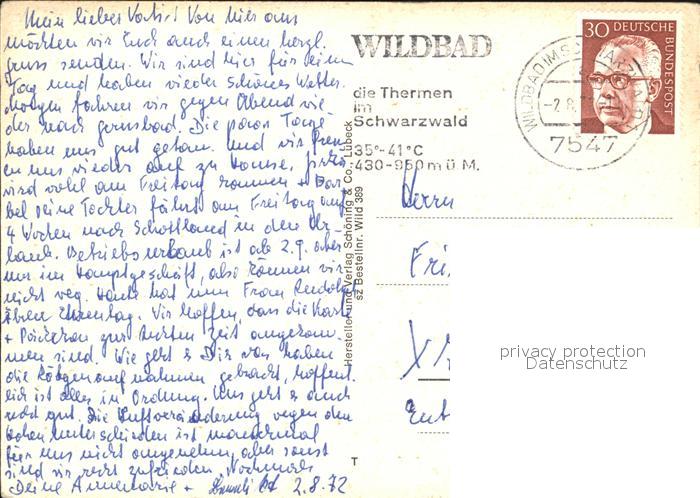 Mein lieber Von hier aus
möchten wir Euch auch einen herzl.
gruss senden. Wir sind hier für ein
Tag und haben wieder schönes Wetter.
Morgen fahren wir gegen Abend wie
der nach Gernsbad. Die paar Tage
haben uns gut getan. und wir freu
en uns wieder auf zu Hause,
wird wohl am Freitag kommen + Bär
bel seine Tochter fährt am Freitag auf
4 Wochen nach Schottland in den Ur-
laub. Betriebsurlaub ist ab 2.9. aber
nur im Hauptgeschäft, also können wir
nicht weg. Heute hat nun Frau
ihren Ehrentag. Wir hoffen, dass die Karte
+ Päckchen zur rechten Zeit angekom-
men sind. Wie geht's Dir wir haben
die Röntgenaufnahmen gebracht, hoffent
lich ist alles in Ordnung. Uns geht's auch
recht gut. Die Luftveränderung wegen den
hohen Unterschieden ist manchmal
für uns nicht angenehm, aber sonst
sind wir recht zufrieden, Nochmals
Deine Annemarie + 2.8.72
WILDBAD
die Thermen
im
Schwarzwald
35°-41°C
430-950 m ü. M.
30 DEUTSCHE
BUNDESPOST
WILDBAD IM SCHWARZWALD
-2.8.
7547
Hersteller und Verlag Schöning & Co., Lübeck
sz Bestellnr. Wild 389
Herrn
Fri
privacy protection
Datenschutz
T